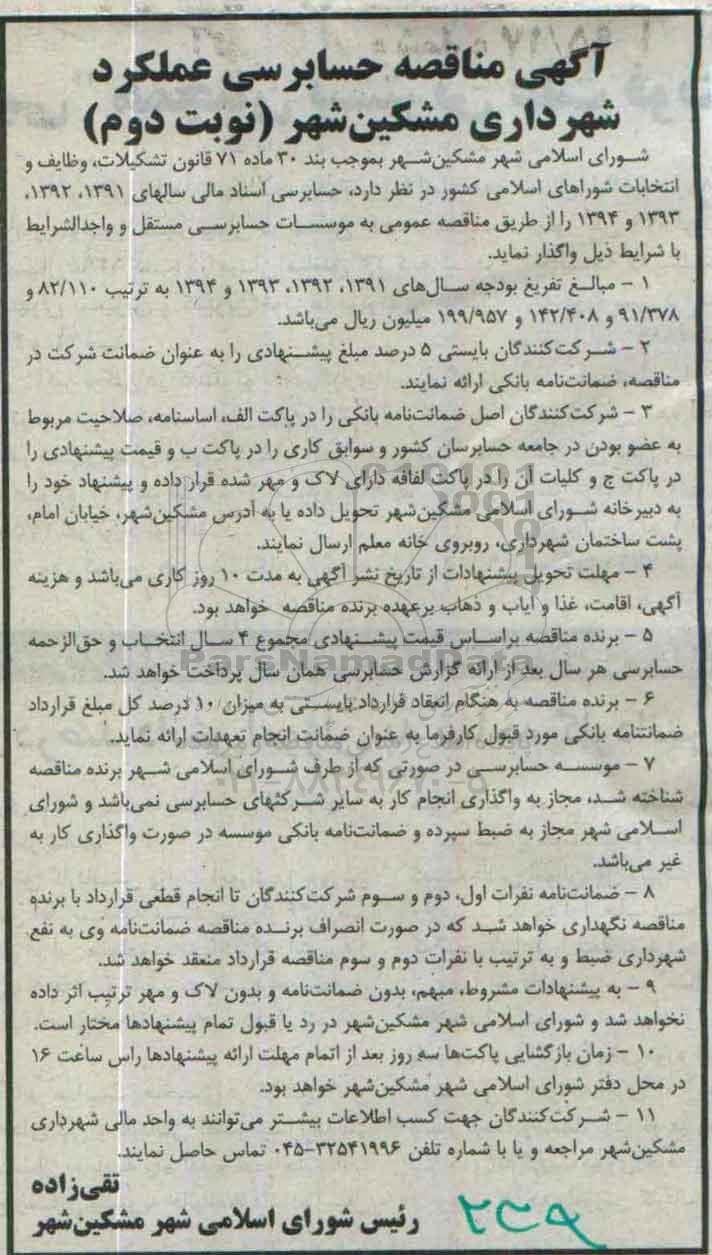 آگهی مناقصه حسابرسی عملکرد
شهرداری مشکین‌شهر (نوبت دوم)
شورای اسلامی شهر مشکین‌شهر بموجب بند ۳۰ ماده ۷۱ قانون تشکیلات، وظایف و
انتخابات شوراهای اسلامی کشور در نظر دارد، حسابرسی اسناد مالی سالهای ۱۳۹۱، ۱۳۹۲،
۱۳۹۳ و ۱۳۹۴ را از طریق مناقصه عمومی به موسسات حسابرسی مستقل و واجدالشرایط
با شرایط ذیل واگذار نماید.
۱ – مبالغ تفریغ بودجه سال‌های ۱۳۹۱، ۱۳۹۲، ۱۳۹۳ و ۱۳۹۴ به ترتیب ۸۲/۱۱۰ و
۹۱/۳۷۸ و ۱۴۲/۴۰۸ و ۱۹۹/۹۵۷ میلیون ریال می‌باشد.
۲ – شرکت‌کنندگان بایستی ۵ درصد مبلغ پیشنهادی را به عنوان ضمانت شرکت در
مناقصه، ضمانت‌نامه بانکی ارائه نمایند.
۳ – شرکت‌کنندگان اصل ضمانت‌نامه بانکی را در پاکت الف، اساسنامه، صلاحیت مربوط
به عضو بودن در جامعه حسابرسان کشور و سوابق کاری را در پاکت ب و قیمت پیشنهادی را
در پاکت ج و کلیات آن را در پاکت لفافه دارای لاک و مهر شده قرار داده و پیشنهاد خود را
به دبیرخانه شورای اسلامی مشگین‌شهر تحویل داده یا به آدرس مشکین‌شهر، خیابان امام،
پشت ساختمان شهرداری، روبروی خانه معلم ارسال نمایند.
۴ – مهلت تحویل پیشنهادات از تاریخ نشر آگهی به مدت ۱۰ روز کاری می‌باشد و هزینه
آگهی، اقامت، غذا و ایاب و ذهاب برعهده برنده مناقصه خواهد بود.
۵ – برنده مناقصه براساس قیمت پیشنهادی مجموع ۴ سال انتخاب و حق‌الزحمه
حسابرسی هر سال بعد از ارائه گزارش حسابرسی همان سال پرداخت خواهد شد.
۶ – برنده مناقصه به هنگام انعقاد قرارداد بایستی به میزان ۱۰ درصد کل مبلغ قرارداد
ضمانتنامه بانکی مورد قبول کارفرما به عنوان ضمانت انجام تعهدات ارائه نماید.
۷ – موسسه حسابرسی در صورتی که از طرف شورای اسلامی شهر برنده مناقصه
شناخته شد، مجاز به واگذاری انجام کار به سایر شرکتهای حسابرسی نمی‌باشد و شورای
اسلامی شهر مجاز به ضبط سپرده و ضمانت‌نامه بانکی موسسه در صورت واگذاری کار به
غیر می‌باشد.
۸ – ضمانت‌نامه نفرات اول، دوم و سوم شرکت‌کنندگان تا انجام قطعی قرارداد با برنده
مناقصه نگهداری خواهد شد که در صورت انصراف برنده مناقصه ضمانت‌نامه وی به نفع
شهرداری ضبط و به ترتیب با نفرات دوم و سوم مناقصه قرارداد منعقد خواهد شد.
۹ – به پیشنهادات مشروط، مبهم، بدون ضمانت‌نامه و بدون لاک و مهر ترتیب اثر داده
نخواهد شد و شورای اسلامی شهر مشکین‌شهر در رد یا قبول تمام پیشنهادها مختار است.
۱۰ – زمان بازگشایی پاکت‌ها سه روز بعد از اتمام مهلت ارائه پیشنهادها راس ساعت ۱۶
در محل دفتر شورای اسلامی شهر مشکین‌شهر خواهد بود.
۱۱ – شرکت‌کنندگان جهت کسب اطلاعات بیشتر می‌توانند به واحد مالی شهرداری
مشکین‌شهر مراجعه و یا با شماره تلفن ۳۲۵۴۱۹۹۶-۰۴۵ تماس حاصل نمایند.
تقی‌زاده
رئیس شورای اسلامی شهر مشکین‌شهر
ParsNamadData